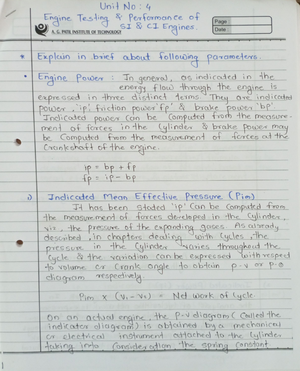 Unit No : 4
Engine Testing & Performance of
SI & CI Engines.
A. G. PATIL INSTITUTE OF TECHNOLOGY
Page:
Date:
* Explain in brief about following parameters.
• Engine Power : In general, as indicated in the
energy flow through the engine is
expressed in three distinct terms. They are indicated
power, 'ip' friction power 'fp' & brake power 'bp'
Indicated power can be computed from the measure-
ment of forces in the cylinder & brake power may
be computed from the measurement of forces at the
Crankshaft of the engine.
ip = bp + fp
fp = ip - bp
i) Indicated Mean Effective Pressure (Pim)
It has been stated 'ip' can be computed from
the measurement of forces developed in the cylinder,
viz, the pressure of the expanding gases. As already
described, in chapters dealing with cycles, the
pressure in the cylinder varies throughout the
cycle & the variation can be expressed with respect
to volume or Crank angle to obtain p-v or p-θ
diagram respectively.
Pim x (V₁ - V₂) = Net work of cycle
On an actual engine, the p-v diagram (called the
indicator diagram) is obtained by a mechanical
or electrical instrument attached to the cylinder
taking into consideration the spring constant